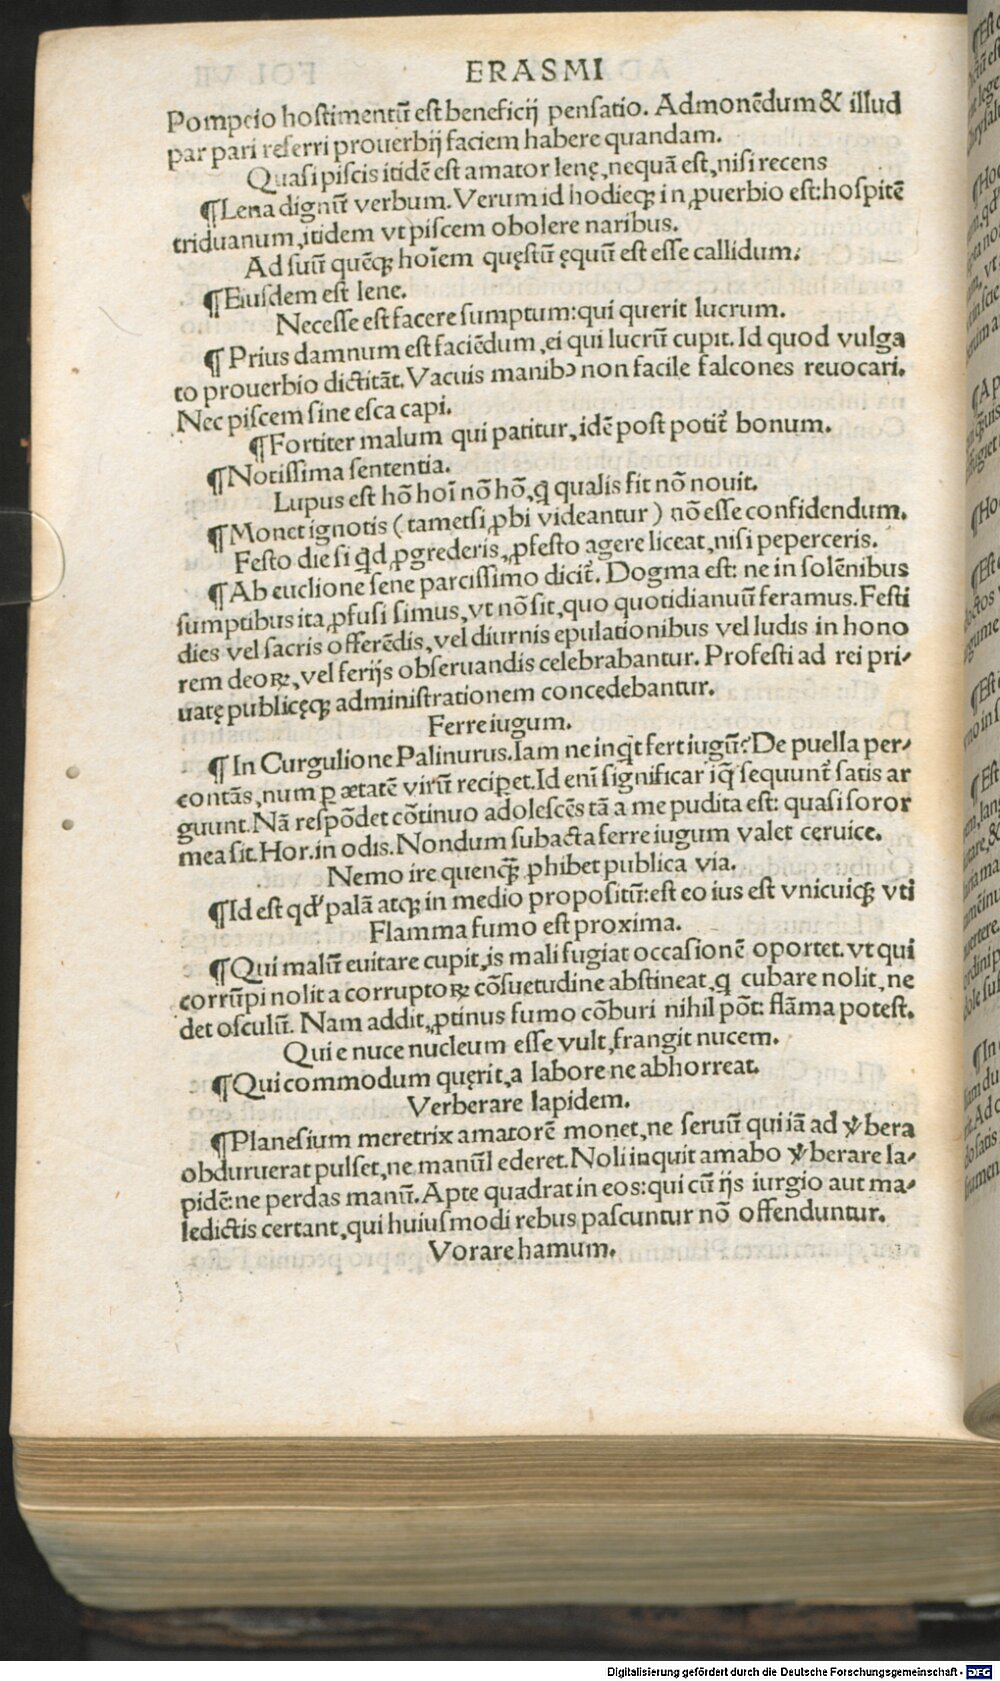 ERASMI
Pompeio hostimentũ est beneficij pensatio. Admonẽdum & illud
par pari referri prouerbij faciem habere quandam.
Quasi piscis itidẽ est amator lenę, nequã est, nisi recens
¶Lena dignũ verbum. Verum id hodieqꝫ in ꝓuerbio est: hospitẽ
triduanum, itidem vt piscem obolere naribus.
Ad suũ quẽqꝫ hoĩem quęstũ ęquũ est esse callidum.
¶Eiusdem est lene.
Necesse est facere sumptum: qui querit lucrum.
¶Prius damnum est faciẽdum, ei qui lucrũ cupit. Id quod vulga
to prouerbio dictitãt. Vacuis manibꝰ non facile falcones reuocari.
Nec piscem sine esca capi.
¶Fortiter malum qui patitur, idẽ post potit̃ bonum.
¶Notissima sententia.
Lupus est hõ hoĩ nõ hõ, q̃ qualis sit nõ nouit.
¶Monet ignotis (tametsi ꝓbi videantur) nõ esse confidendum.
Festo die si qd̃ ꝓgrederis, ꝓfesto agere liceat, nisi peperceris.
¶Ab euclione sene parcissimo dicit̃. Dogma est: ne in solẽnibus
sumptibus ita ꝓfusi simus, vt nõ sit, quo quotidianuũ feramus. Festi
dies vel sacris offerẽdis, vel diurnis epulationibus vel ludis in hono
rem deoꝝ, vel ferijs obseruandis celebrabantur. Profesti ad rei pri-
uatę publicęqꝫ administrationem concedebantur.
Ferre iugum.
¶In Curgulione Palinurus. Iam ne inq̃t fert iugũ? De puella per-
contãs, num ꝑ ætatẽ virũ reciperet. Id enĩ significar iq̃ sequunt̃ satis ar
guunt. Nã respõdet cõtinuo adolescẽs tã a me pudita est: quasi soror
mea sit. Hor. in odis. Nondum subacta ferre iugum valet ceruice.
Nemo ire quenqꝫ ꝓhibet publica via.
¶Id est qđ palã atqꝫ in medio propositũ: est eo ius est vnicuiqꝫ vti
Flamma fumo est proxima.
¶Qui malũ euitare cupit, is mali fugiat occasionẽ oportet. vt qui
corrũpi nolit a corruptoꝝ cõsuetudine abstineat, q̃ cubare nolit, ne
det osculũ. Nam addit, ꝓtinus fumo cõburi nihil põt: flãma potest.
Qui e nuce nucleum esse vult, frangit nucem.
¶Qui commodum quęrit, a labore ne abhorreat.
Verberare lapidem.
¶Planesium meretrix amatorẽ monet, ne seruũ qui iã ad v̾bera
obduruerat pulset, ne manũl ederet. Noli inquit amabo v̾berare la-
pidẽ: ne perdas manũ. Apte quadrat in eos: qui cũ ijs iurgio aut ma-
ledictis certant, qui huiusmodi rebus pascuntur nõ offenduntur.
Vorare hamum.
Digitalisierung gefördert durch die Deutsche Forschungsgemeinschaft - DFG